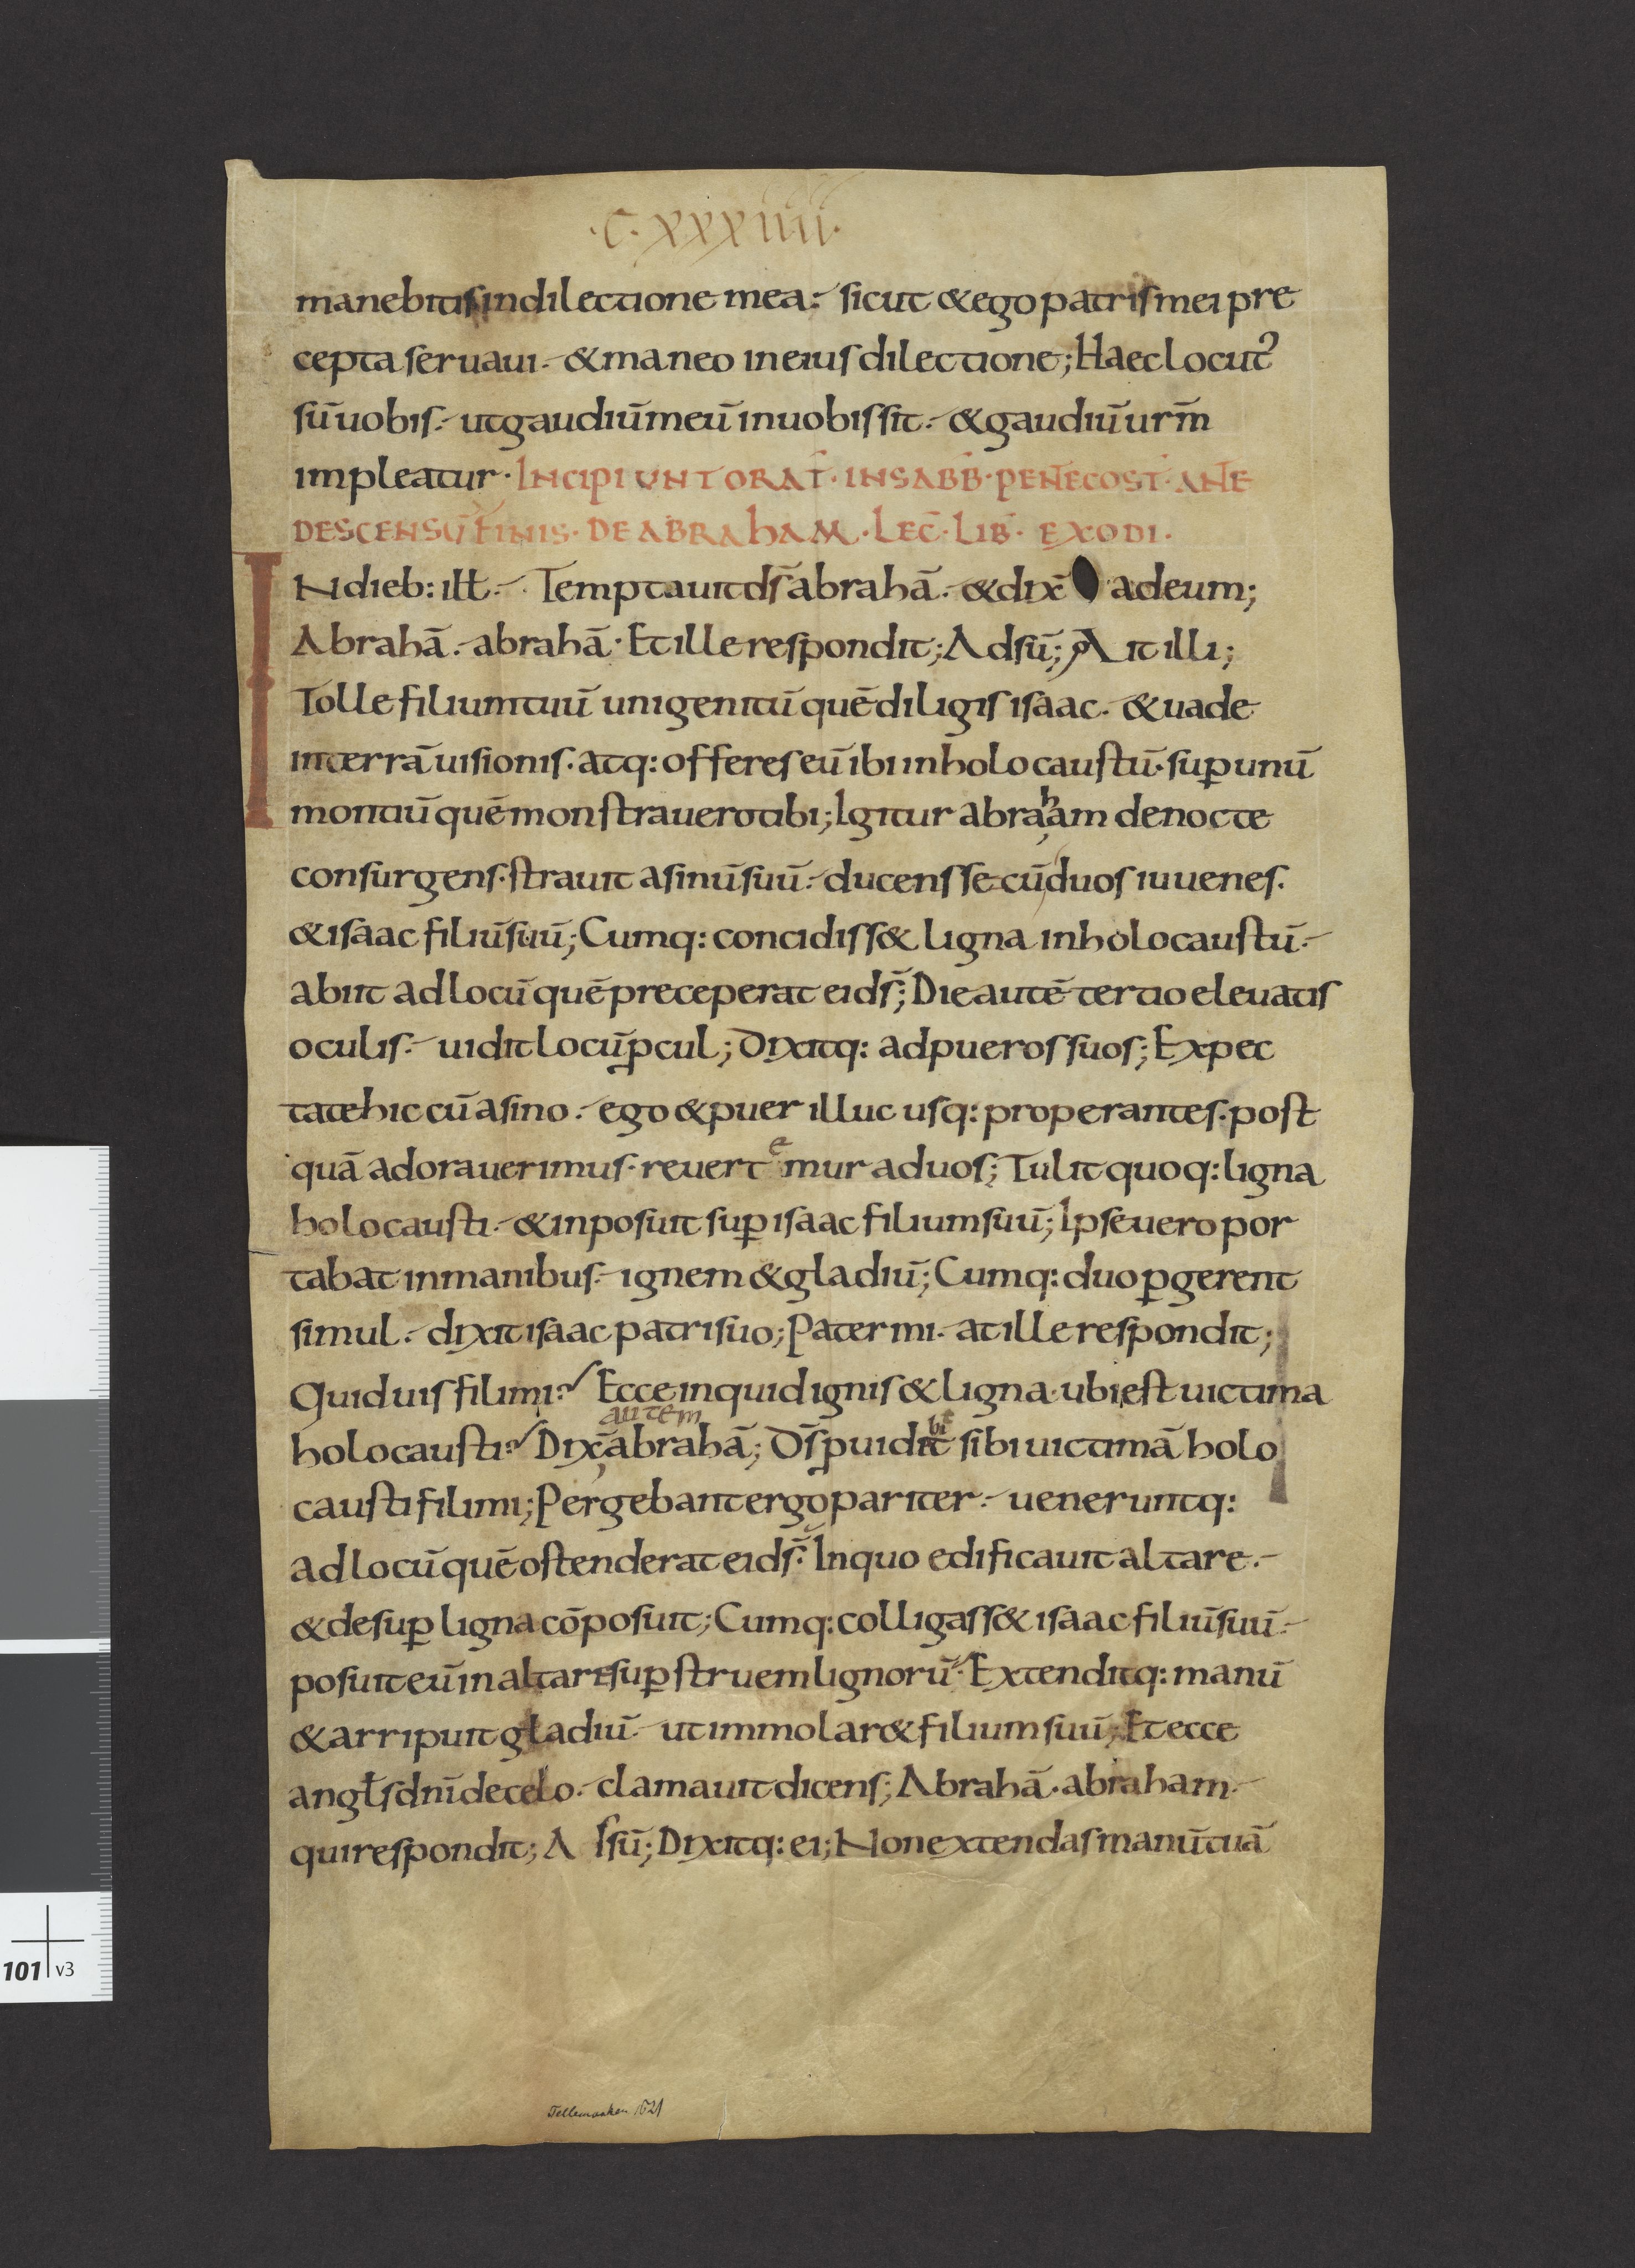 ·C·XXXIIII·
manebitis in dilectione mea· sicut & ego patris mei pre
cepta seruaui· & maneo in eius dilectione; Haec locut᾽
sū uobis· ut gaudiū meū in uobis sit· & gaudiū urm̄
impleatur· INCIPIUNT ORAT̄· IN SABB̄· PENTECOST̄· ANTE
DESCENSŪ FONTIS· DE ABRAHAM· LEC̄· LIB̄· EXODI·
INdieb: ill̄· Temptauit ds̄ abrahā· & dix̄ ad eum;
Abrahā· abrahā· Et ille respondit; Adsū; Ait illi;
Tolle filium tuū unigenitū quē diligis isaac· & uade
in terrā uisionis· atq: offeres eū ibi in holocaustū· suꝑ unū
montiū quē monstrauero tibi; Igitur abraham de nocte
consurgens· strauit asinū suū· ducens secū duos iuuenes·
& isaac filiū suū; Cumq: concidiss& ligna in holocaustū·
abiit ad locū quē preceperat ei ds̄; Die autē tertio eleuatis
oculis· uidit locū ꝓcul; Dixitq: ad pueros suos; Expec
tate hic cū asino· ego & puer illuc usq: properantes· post
quā adorauerimus· reuertemur ad uos; Tulit quoq: ligna
holocausti· & inposuit suꝑ isaac filium suū; Ipse uero por
tabat in manibus· ignem & gladiū; Cumq: duo ꝑgerent
simul· dixit isaac patri suo; Pater mi· at ille respondit;
Quid uis fili mi? Ecce inquid ignis & ligna· ubi est uictima
autem
holocausti? Dix̄ abrahā; Ds̄ ꝓuidebit sibi uictimā holo
causti fili mi; Pergebant ergo pariter· ueneruntq:
ad locū quē ostenderat ei ds̄· In quo edificauit altare·
& desuꝑ ligna cōposuit; Cumq: colligass& isaac filiū suū·
posuit eū in altare suꝑ struem lignorū· Extenditq: manū
& arripuit gladiū· ut immolar& filium suū; Et ecce
angl̄s dnī de celo· clamauit dicens; Abrahā· abraham·
qui respondit; Assū; Dixitq: ei; Non extendas manū tuā
Tellemarken 1621